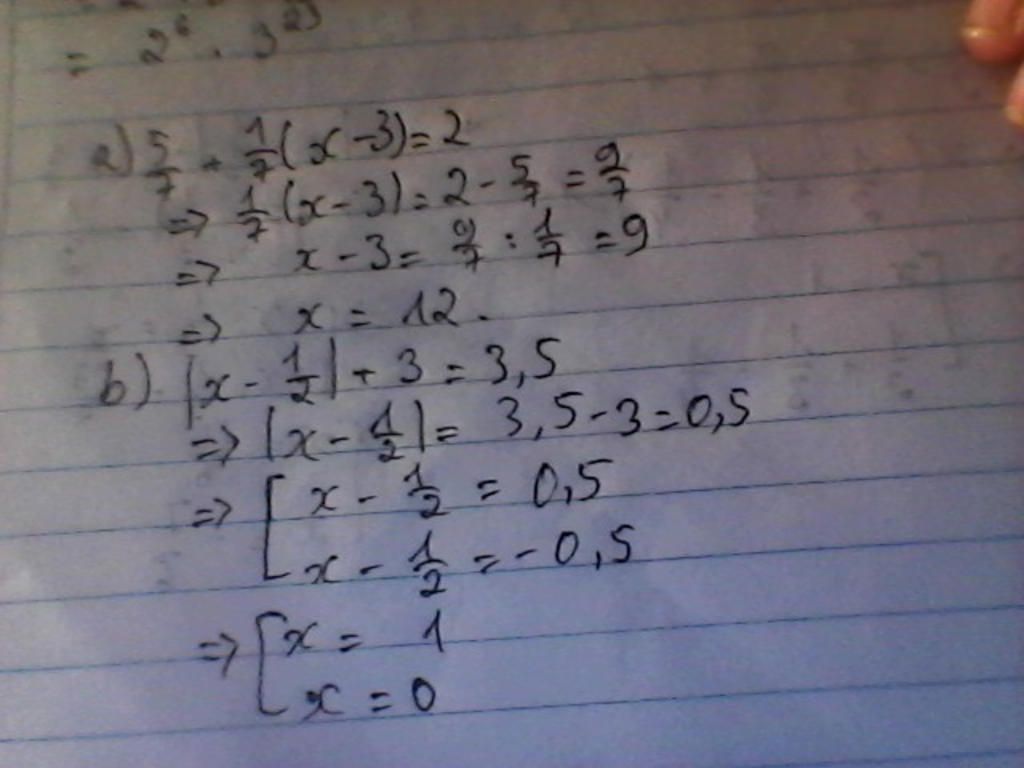 = 2⁶ . 3²⁹
a) 5/7 + 1/7(x - 3) = 2
=> 1/7(x - 3) = 2 - 5/7 = 9/7
=> x - 3 = 9/7 : 1/7 = 9
=> x = 12.
b) |x - 1/2| + 3 = 3,5
=> |x - 1/2| = 3,5 - 3 = 0,5
=> [ x - 1/2 = 0,5
x - 1/2 = - 0,5
=> [ x = 1
x = 0